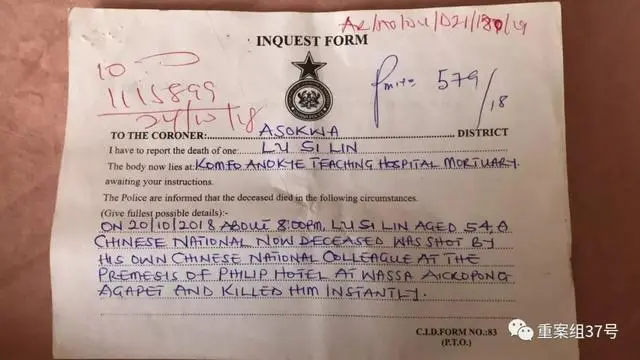 INQUEST FORM
10
1115899
24/10/18
579
/18
TO THE CORONER: ASOKWA DISTRICT
I have to report the death of one: LU SI LIN
The body now lies at: KOMFO ANOKYE TEACHING HOSPITAL MORTUARY.
awaiting your instructions.
The Police are informed that the deceased died in the following circumstances.
(Give fullest possible details):-
ON 20/10/2018 ABOUT 8:00PM, LU SI LIN AGED 54, A
CHINESE NATIONAL NOW DECEASED WAS SHOT BY
HIS OWN CHINESE NATIONAL COLLEAGUE AT THE
PREMESIS OF PHILIP HOTEL AT WASSA
AGAPET AND KILLED HIM INSTANTLY.
C.I.D.FORM NO.:83
(P.T.O.)
重案组37号